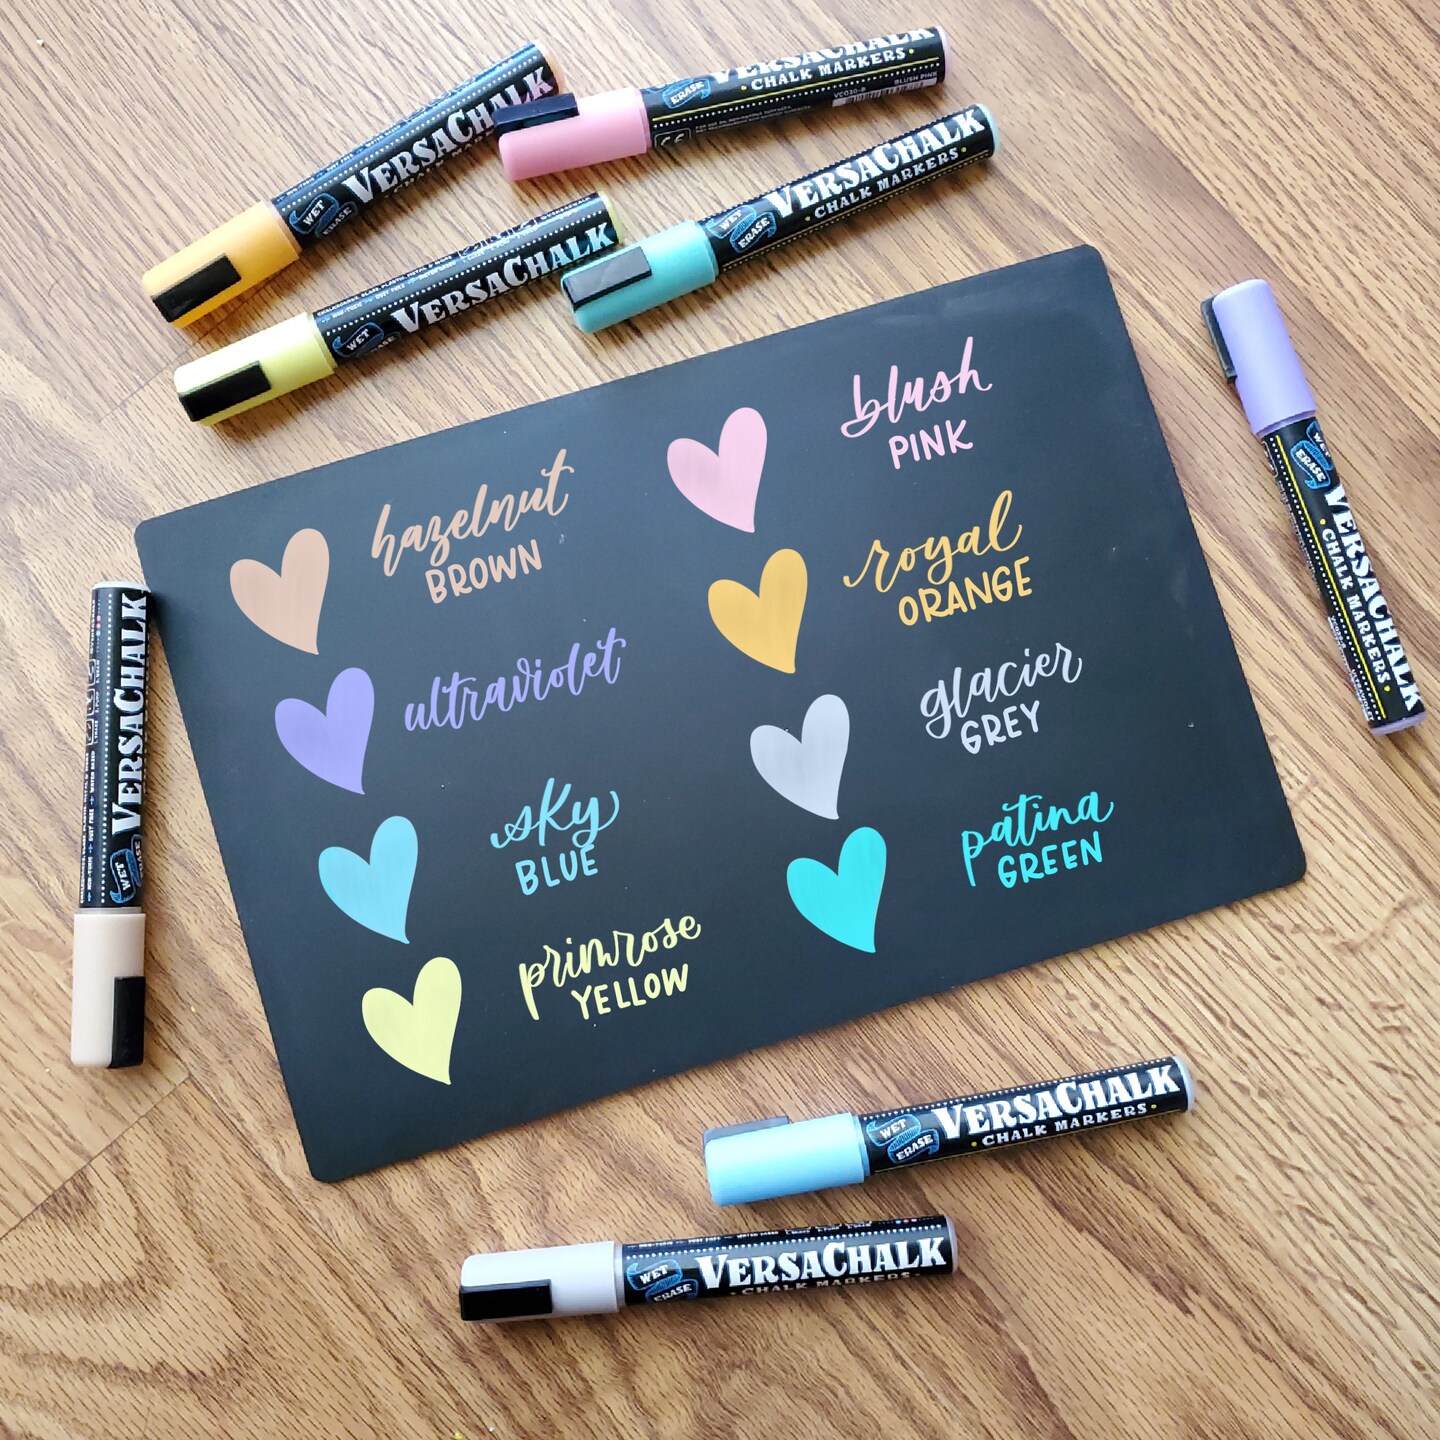 VERSACHALK
CHALK MARKERS
WET
ERASE
VERSACHALK
CHALK MARKERS
ERASE
BLUSH PINK
VC030-B
VERSACHALK
CHALK MARKERS
WET
ERASE
VERSACHALK
WET
ERASE
blush
PINK
hazelnut
BROWN
royal
ORANGE
ultraviolet
glacier
GREY
sky
BLUE
patina
GREEN
primrose
YELLOW
VERSACHALK
WET
ERASE
WET
ERASE
VERSACHALK
CHALK MARKERS
ULTRAVIOLET
WET
ERASE
VERSACHALK
CHALK MARKERS
WET
ERASE
VERSACHALK
CHALK MARKERS